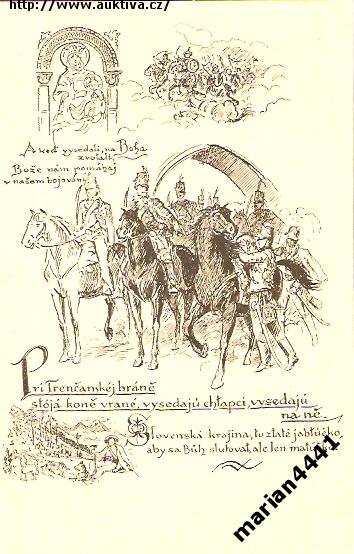 http://www.auktiva.cz/
A keď vysedali, na Boha
zvolali,
Bože nám pomáhaj
v našem bojování.
Pri Trenčanskéj bráně
stójá koně vrané, vysedajú chłapci, vysedajú
na ně.
Slovenská krajina, tu zlaté jabłúčko,
aby sa Bůh slutoval, ale len
marian4441